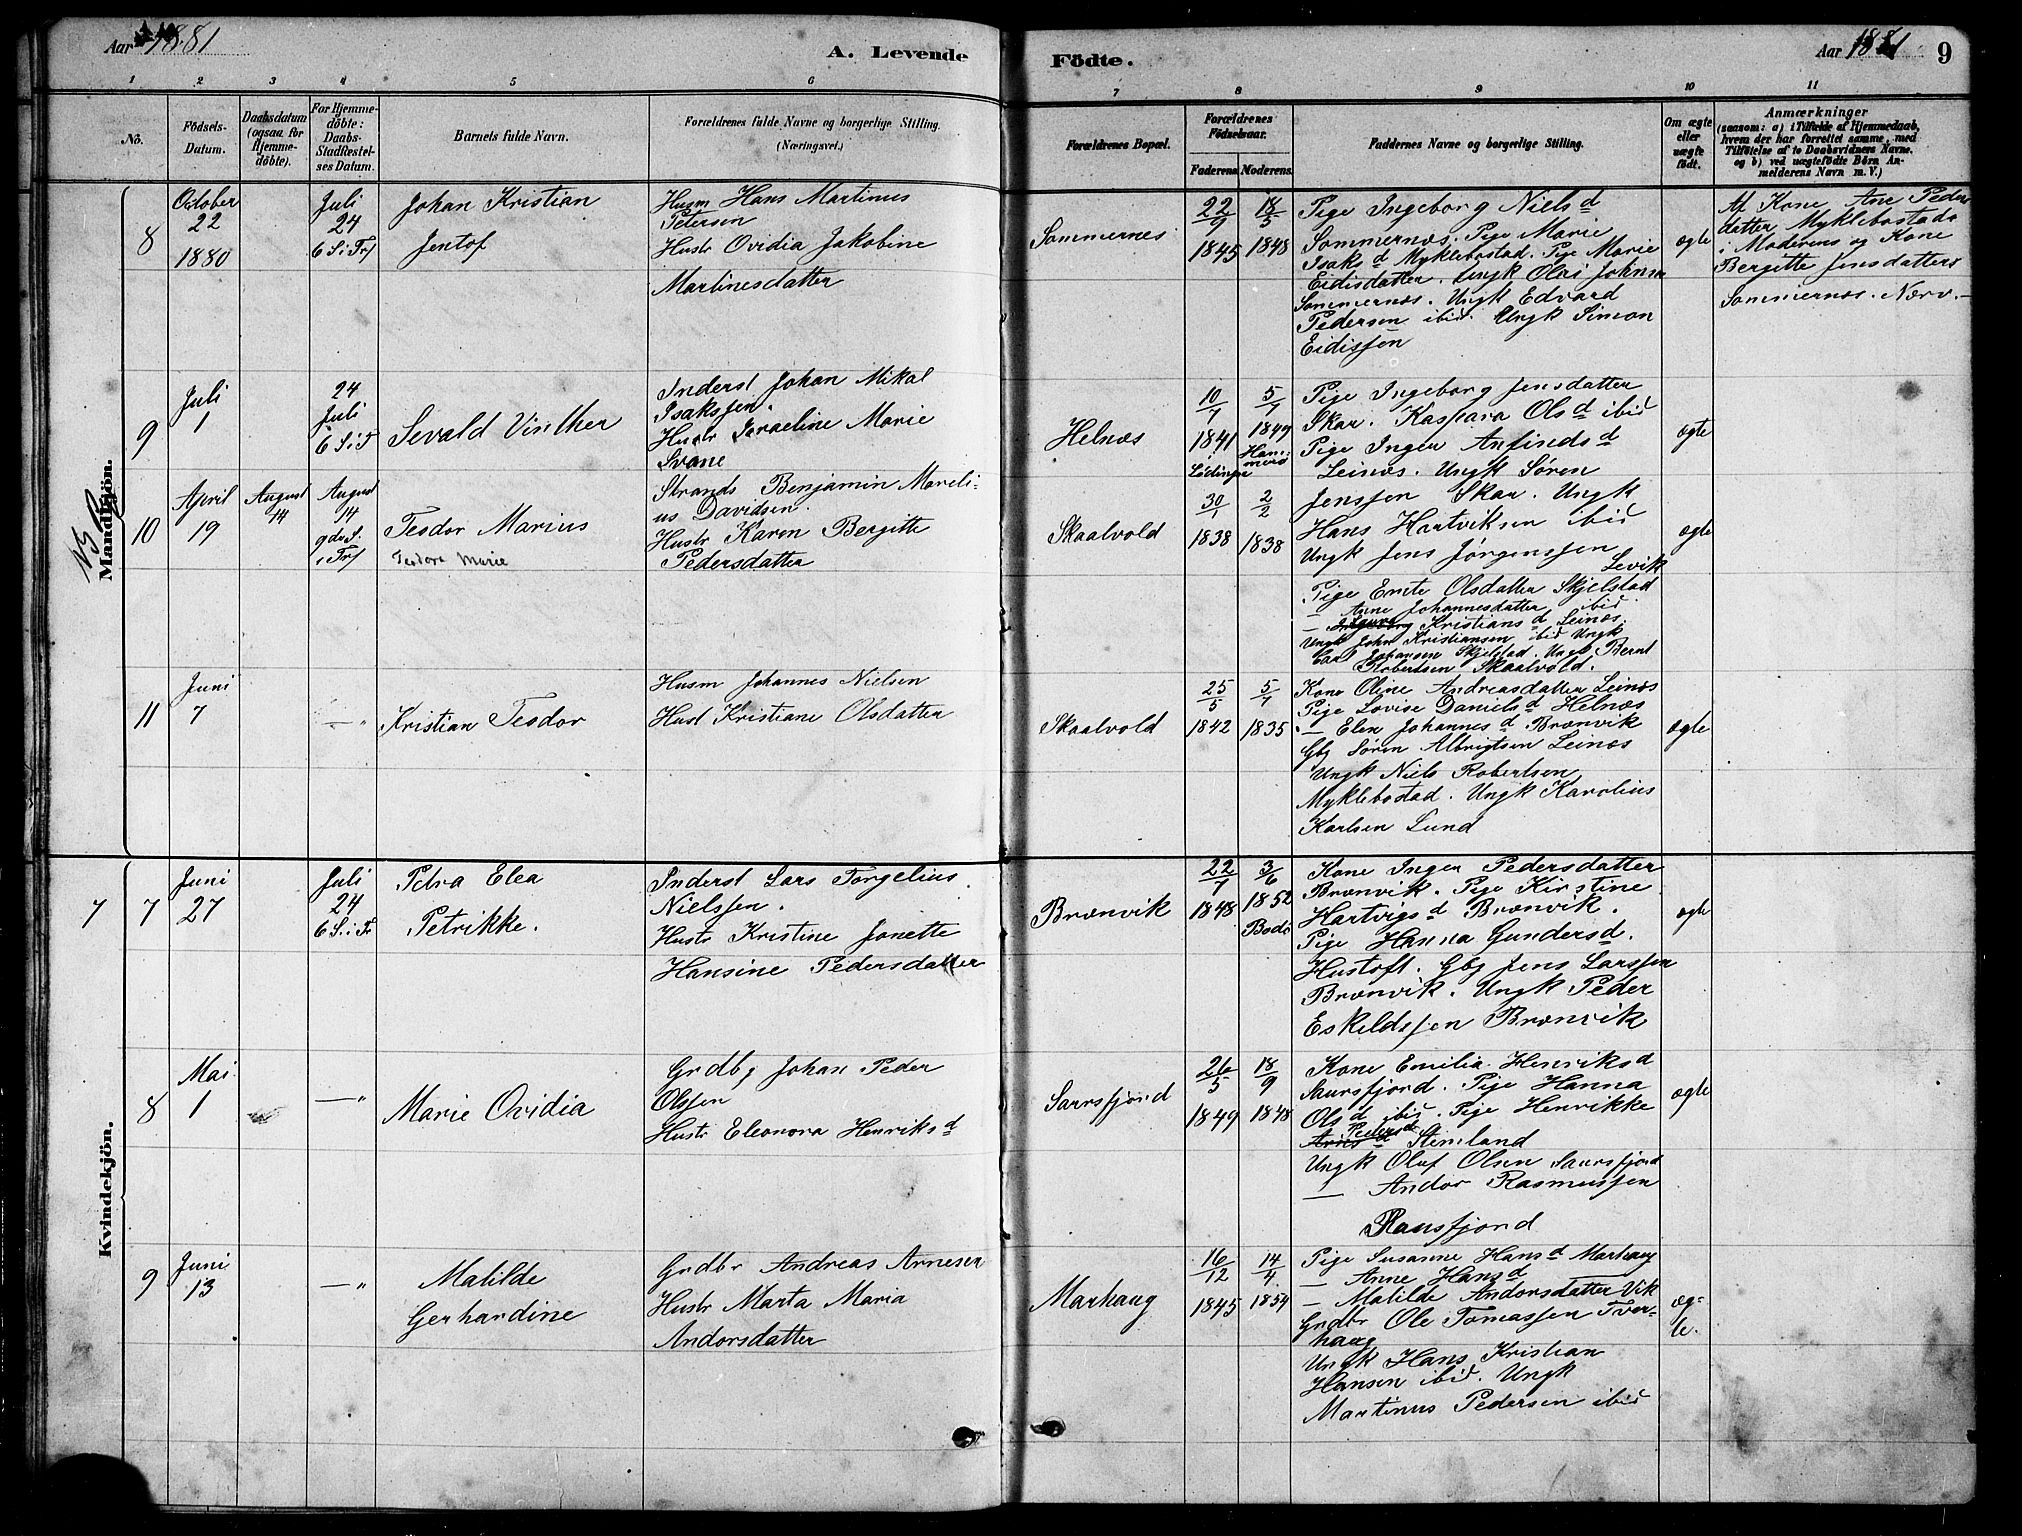 Aar 1881
A. Levende
Födte.
Aar 1881
9
1 2 3 4 5 6
7 8 9 10 11
No.
Födsels-
Datum.
Daabsdatum
(ogsaa for
Hjemme-
döbte).
For Hjemme-
döbte:
Daabs-
Stadfæstel-
ses Datum.
Barnets fulde Navn.
Forældrenes fulde Navne og borgerlige Stilling.
(Næringsvei.)
Forældrenes Bopæl.
Forældrenes
Födselsaar.
Faderens. Moderens.
Faddernes Navne og borgerlige Stilling.
Om ægte
eller
uægte
födt.
Anmærkninger
(saasom: a) i Tilfælde af Hjemmedaab,
hvem der har forrettet samme, med
Tilföielse af to Daabsvidners Navne.
og b) ved uægtefödte Börn An-
melderens Navn m. V.)
Mandkjön.
8
October
22
1880
Juli
24
6 S. i Tr
Johan Kristian
Jentof
Husm Hans Martinus
Petersen
Hustr Ovidia Jakobine
Martinesdatter
Sommernes
22/9
1845
18/5
1848
Pige Ingeborg Niels d
Sommernæs. Pige Marie
Isaks d Myklebostad. Pige Marie
Eidisdatter. Ungk Olai Johnsen
Sommernæs. Ungk Edvard
Pedersen ibid. Ungk Simon
Eidissen
ægte
Af Kone Ane Peders
datter Myklebostads
i Moderens og Kone
Bergitte Jensdatters
Sommernæs. Nærv.
9
Juli
1
24
Juli
6 S. i T
Sevald Vinther
Inderst Johan Mikal
Isakssen.
Hustr Israeline Marie
Svane
Helnæs
10/7
1841
Lødingen
5/7
1849
Ham-
merø
Pige Ingeborg Jensdatter
Skar. Kaspara Ols d ibid
Pige Inger Anfinds d
Leinæs. Ungk Søren
Jenssen Skar. Ungk
Hans Hartviksen ibid
Ungk Jens Jørgenssen
Levik
ægte
10
April
19
August
14
August
14
9de S.
i Tr
Teodor Marius
Teodora Marie
Strands Benjamin Mareli-
us Davidsen.
Hustr Karen Bergitte
Pedersdatter
Skaalvold
30/1
1838
2/2
1838
Pige Emte Olsdatter Skjelstad
— Anne Johannesdatter ibid
— Kristians d Leinæs.
Ungk John Kristiansen ibid Ungk
Johansen Skjelstad. Ungk Bernt
Robertsen Skaalvold.
ægte
11
Juni
7
— "
Kristian Teodor
Husm Johannes Nielsen
Hust Kristiane Olsdatter
Skaalvold
25/5
1842
5/7
1835
Kone Oline Andreasdatter Leinæs
Pige Lovise Daniels d Helnæs
— Elen Johannes d Brænvik
Gbg Søren Albrigtsen Leinæs
Ungk Niels Robertsen
Myklebostad. Ungk Karolius
Karlsen Lund
ægte
Kvindekjön.
7
7
Juni
27
Juli
24
6 S. i Tr
Petra Elea
Petrikke.
Inderst Lars Torgelius
Nielssen.
Hustr Kristine Jonette
Hansine Pedersdatter
Brænvik
22/7
1848
3/6
1852
Bodø
Kone Inger Pedersdatter
Brænvik. Pige Kirstine
Hartvigs d Brænvik.
Pige Hanna Gunders d.
Hustoft. Gbg Jens Larssen
Brænvik. Ungk Peder
Eskildssen Brænvik
ægte
8
Mai
1
— "
Marie Ovidia
Grdbg Johan Peder
Olssen
Hustr Eleonora Henriks d
Saursfjord
26/5
1849
18/9
1848
Kone Emilia Henriks d
Saursfjord. Pige Hanna
Ols d ibid. Pige Henrikke
Peders d Stenland
Ungk Oluf Olsen Saursfjord
— Andor Rasmussen
Saursfjord
ægte
9
Juni
13
— "
Matilde
Gerhardine
Grdbr Andreas Arnesen
Hustr Marta Maria
Andorsdatter
Marhaug
16/12
1845
14/4
1854
Pige Susanne Hans d Marhaug
— Anne Hans d
— Matilde Andorsdatter Vik
Grdbr Ole Tomassen Tver-
haug
Ungk Hans Kristian
Hansen ibid. Ungk
Martinus Pedersen ibid
æg-
te.